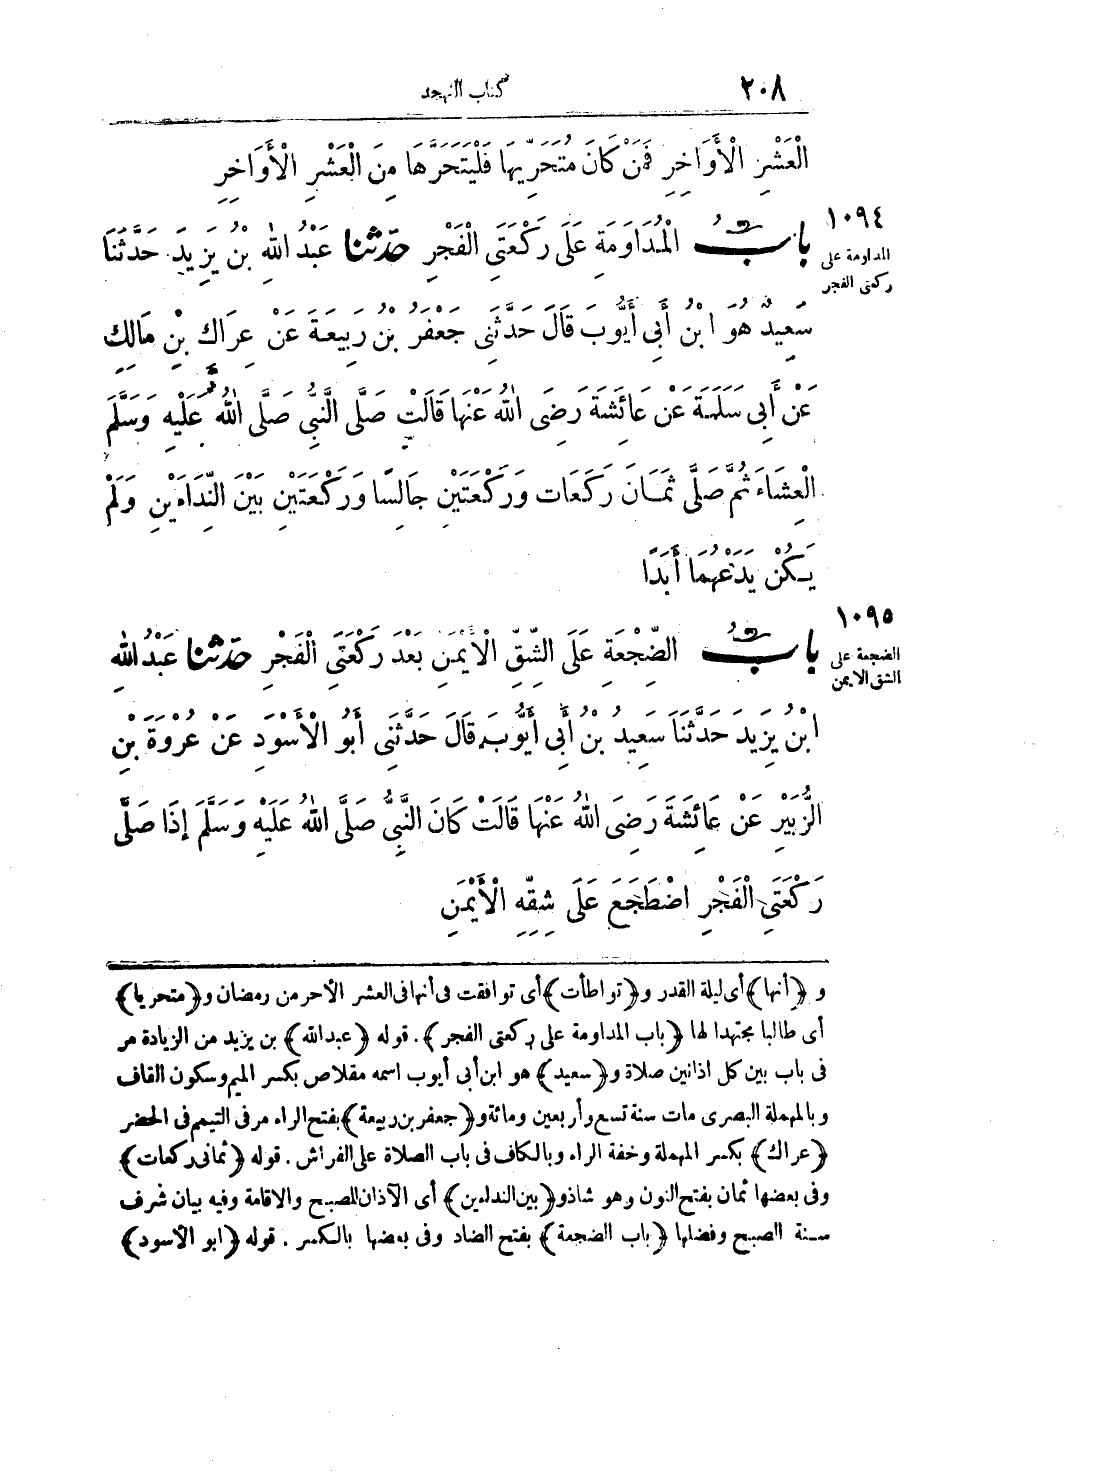 ٢٠٨ كتاب التهجد
الْعَشْرِ الْأَوَاخِرِ فَمَنْ كَانَ مُتَحَرِّيهَا فَلْيَتَحَرَّهَا مِنَ الْعَشْرِ الْأَوَاخِرِ
١٠٩٤
المداومة على
ركعتى الفجر
بابُ الْمُدَاوَمَةِ عَلَى رَكْعَتَىِ الْفَجْرِ حدثنا عَبْدُ اللهِ بْنُ يَزِيدَ حَدَّثَنَا
سَعِيدٌ هُوَ ابْنُ أَبِى أَيُّوبَ قَالَ حَدَّثَنِى جَعْفَرُ بْنُ رَبِيعَةَ عَنْ عِرَاكِ بْنِ مَالِكٍ
عَنْ أَبِى سَلَمَةَ عَنْ عَائِشَةَ رَضِىَ اللهُ عَنْهَا قَالَتْ صَلَّى النَّبِىُّ صَلَّى اللهُ عَلَيْهِ وَسَلَّمَ
الْعِشَاءَ ثُمَّ صَلَّى ثَمَانَ رَكَعَات وَرَكْعَتَيْنِ جَالِسًا وَرَكْعَتَيْنِ بَيْنَ النِّدَاءَيْنِ وَلَمْ
يَكُنْ يَدَعُهُمَا أَبَدًا
١٠٩٥
الضجعة على
الشق الايمن
بابُ الضِّجْعَةِ عَلَى الشِّقِّ الْأَيْمَنِ بَعْدَ رَكْعَتَىِ الْفَجْرِ حدثنا عَبْدُ اللهِ
ابْنُ يَزِيدَ حَدَّثَنَا سَعِيدُ بْنُ أَبِى أَيُّوبَ قَالَ حَدَّثَنِى أَبُو الْأَسْوَدِ عَنْ عُرْوَةَ بْنِ
الزُّبَيْرِ عَنْ عَائِشَةَ رَضِىَ اللهُ عَنْهَا قَالَتْ كَانَ النَّبِىُّ صَلَّى اللهُ عَلَيْهِ وَسَلَّمَ إِذَا صَلَّى
رَكْعَتَىِ الْفَجْرِ اضْطَجَعَ عَلَى شِقِّهِ الْأَيْمَنِ
و ﴿أنها﴾ أى ليلة القدر و﴿تواطأت﴾ أى توافقت فى أنها فى العشر الأخر من رمضان و﴿متحريا﴾
أى طالبا مجتهدا لها ﴿باب المداومة على ركعتى الفجر﴾. قوله ﴿عبد الله﴾ بن يزيد من الزيادة مر
فى باب بين كل اذانين صلاة و﴿سعيد﴾ هو ابن أبى أيوب اسمه مقلاص بكسر الميم وسكون القاف
وبالمهملة البصرى مات سنة تسع وأربعين ومائة و﴿جعفر بن ربيعة﴾ بفتح الراء مر فى التيمم فى الحضر
﴿عراك﴾ بكسر المهملة وخفة الراء وبالكاف فى باب الصلاة على الفراش. قوله ﴿ثمانى ركعات﴾
وفى بعضها ثمان بفتح النون وهو شاذ و﴿بين النداءين﴾ أى الآذان للصبح والاقامة وفيه بيان شرف
سنة الصبح وفضلها ﴿باب الضجعة﴾ بفتح الضاد وفى بعضها بالكسر. قوله ﴿ابو الأسود﴾